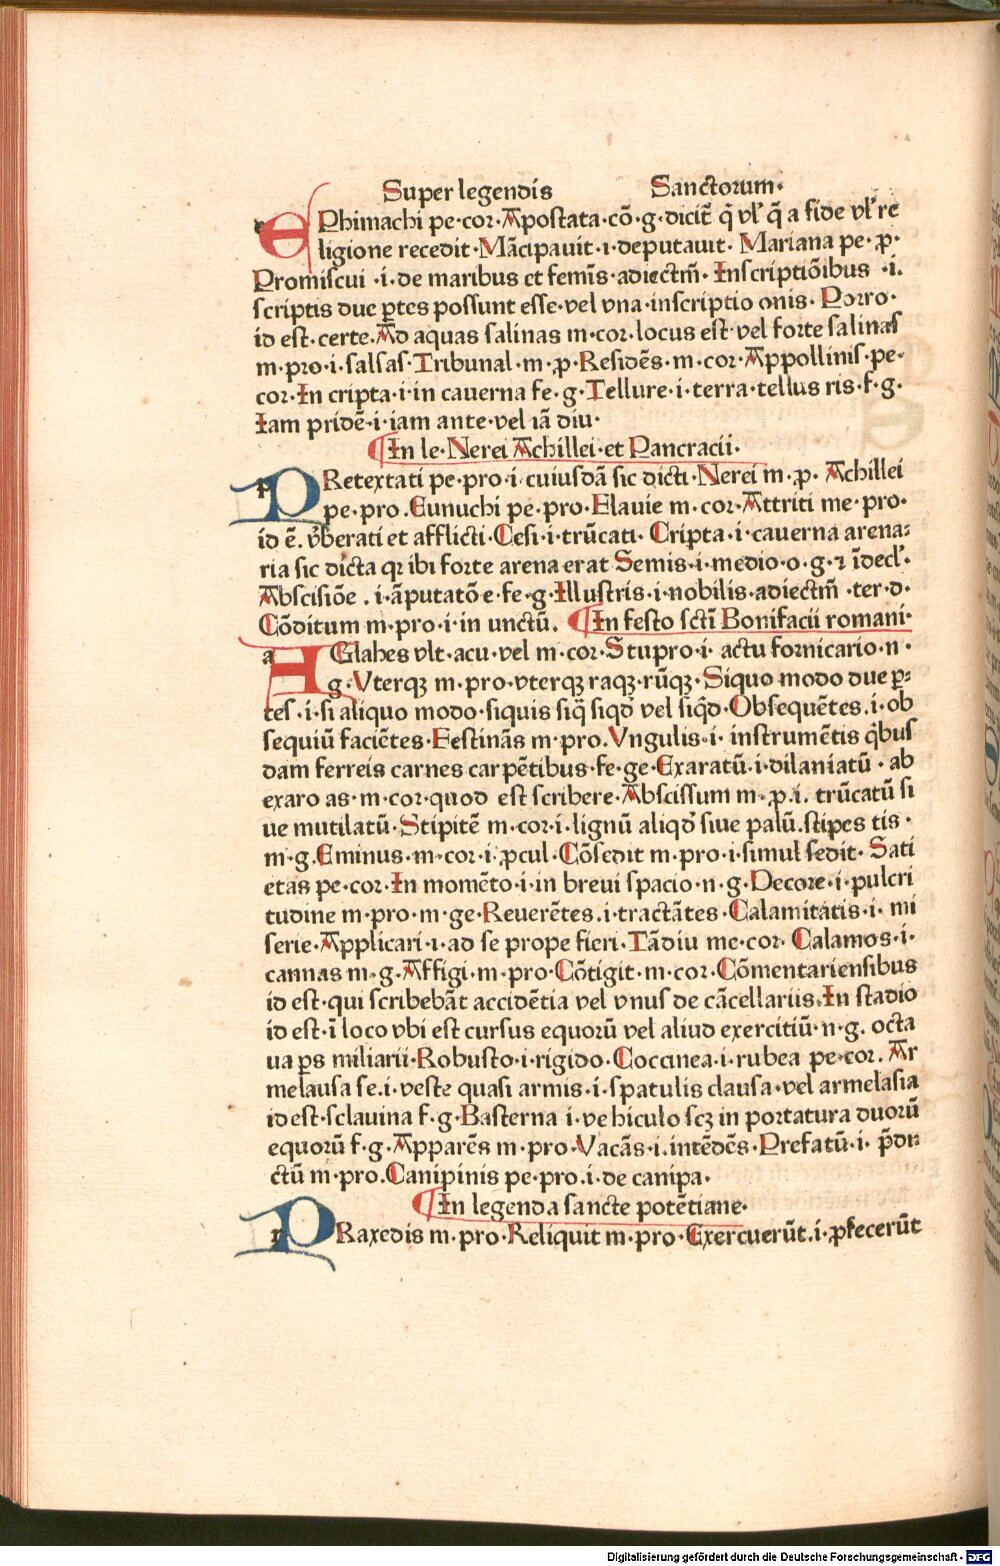 Super legendis Sanctorum·
EPhimachi pe·cor·Apostata·cō·g·dicit᷑ q̇ vl᷑ q̄ a fide vl᷑ re
ligione recedit·Mācipauit·i·deputauit· Mariana pe·ꝓ·
Promiscui ·i·de maribus et femīs·adiectm̄· Inscriptiōibus ·i·
scriptis due ꝑtes possunt esse·vel vna·inscriptio onis· Porro·
id est·certe·Ad aquas salinas m·cor·locus est vel forte salinas
m·pro·i·salsas·Tribunal·m·ꝓ·Residēs·m·cor·Appollinis·pe·
cor·In cripta·i·in cauerna fe·g·Tellure·i·terra·tellus ris·f·g·
Iam pridē·i·iam ante·vel iā diu·
In le·Nerei Achillei·et Pancracii·
PRetextati pe·pro·i·cuiusdā sic dicti·Nerei m·ꝓ· Achillei
pe·pro.Eunuchi pe·pro·Flauie m·cor·Attriti me·pro·
id ē. v̓berati et afflicti·Cesi·i·trūcati· Cripta·i·cauerna arena⸗
ria sic dicta qꝛ ibi forte arena erat Semis·i·medio·o·g·⁊ īdecl᷑·
Abscisiōe . i·āputatōe·fe·g·Illustris·i·nobilis·adiectm̄ ·ter·d·
Cōditum m·pro·i·in unctū. In festo sctī Bonifacii romani·
AGlahes vlt·acu·vel m·cor·Stupro·i· actu fornicario·n·
g·Vterqꝫ m·pro·vterqꝫ raqꝫ·rūqꝫ·Siquo modo due ꝑ⸗
tes·i·si aliquo modo·siquis siq̄ siqd̓ vel siq̄d·Obsequētes.i·ob
sequiū faciētes·Festinās m·pro.Vngulis·i· instrumētis q̇bus
dam ferreis carnes carpētibus·fe·ge·Exaratū·i·dilaniatū·ab
exaro as·m·cor·quod est scribere·Abscissum m·ꝓ·i. trūcatū si
ue mutilatū·Stipitē m·cor·i·lignū aliqd̓ siue palū.stipes tis·
m·g·Eminus·m·cor·i·ꝓcul·Cōsedit m·pro·i·simul sedit· Sati
etas pe·cor·In momēto·i·in breui spacio·n·g·Decore·i·pulcri
tudine m·pro·m·ge·Reuerētes.i·tractātes·Calamitatis·i· mi
serie·Applicari·i·ad se prope fieri·Tādiu me·cor· Calamos·i·
cannas m·g·Affigi·m·pro·Cōtigit·m·cor·Cōmentariensibus
id est·qui scribebāt accidētia vel vnus de cācellariis·In stadio
id est·ī loco vbi est cursus equorū vel aliud exercitiū·n·g. octa
ua ꝑs miliarii·Robusto·i·rigido·Coccinea·i·rubea pe·cor. Ar
melausa se.i·veste quasi armis·i·spatulis clausa·vel armelasia
id est·sclauina f·g·Basterna i·vehiculo scꝫ in portatura duorū
equorū f·g·Apparēs m·pro·Vacās·i·intēdēs·Prefatū·i· p̄di
ctū m·pro.Canipinis pe·pro·i·de canipa·
In legenda sancte potētiane·
PRaxedis m·pro·Reliquit m·pro·Exercuerūt.i·ꝓfecerūt
Digitalisierung gefördert durch die Deutsche Forschungsgemeinschaft - DFG